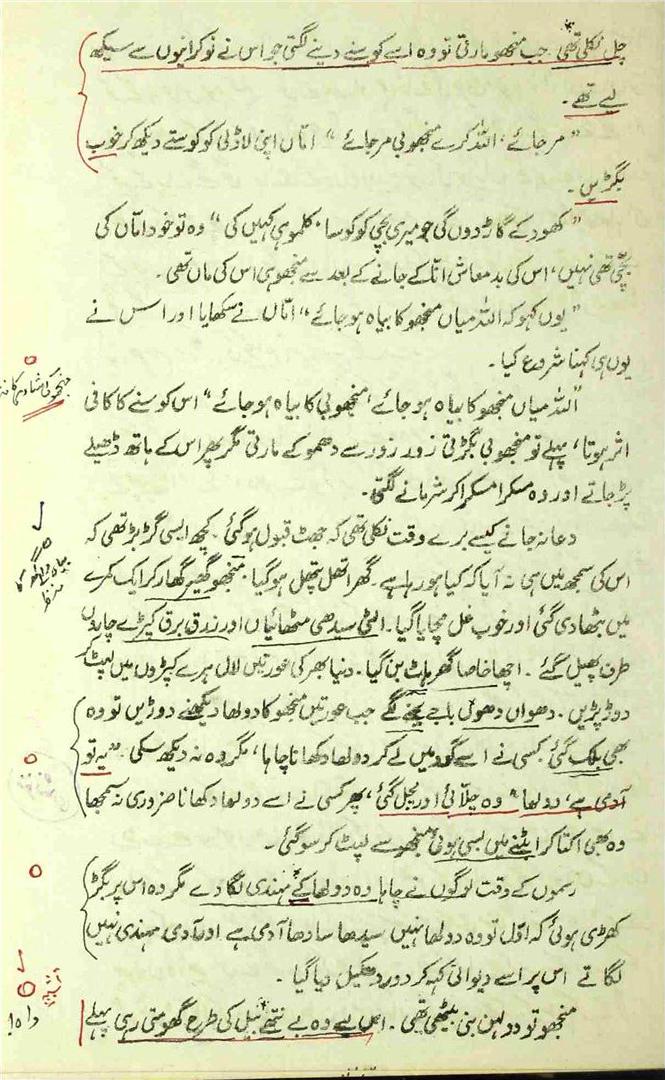 چل نکلی تھی۔ جب منجھو مارتی تو وہ اسے کوسنے دینے لگتی جو اس نے نوکرانیوں سے سیکھ
لیے تھے۔
"مر جائے، اللہ کرے منجھو بی مر جائے" اماں اپنی لاڈلی کو کوستے دیکھ کر خوب
بگڑیں۔
"کھود کے گاڑ دوں گی جو میری بچی کو کوسا، کلموہی کہیں کی" وہ تو خود اماں کی
بچی تھی نہیں، اس کی بدمعاش انا کے جانے کے بعد سے منجھو ہی اس کی ماں تھی۔
"یوں کہو کہ اللہ میاں منجھو کا بیاہ ہو جائے،" اماں نے سکھایا اور اس نے
یوں ہی کہنا شروع کیا۔
"اللہ میاں منجھو کا بیاہ ہو جائے، منجھو بی کا بیاہ ہو جائے" اس کوسنے کا کافی
اثر ہوتا، پہلے تو منجھو بی بگڑتی زور زور سے دھموکے مارتی مگر پھر اس کے ہاتھ ڈھیلے
پڑ جاتے اور وہ مسکرا مسکرا کر شرمانے لگتی۔
دعا نہ جانے کیسے برے وقت نکلی تھی کہ جھٹ قبول ہو گئی۔ کچھ ایسی گڑبڑ تھی کہ
اس کی سمجھ میں ہی نہ آیا کہ کیا ہو رہا ہے۔ گھر اتھل پتھل ہو گیا۔ منجھو گھیر گھار کر ایک کمرے
میں بٹھا دی گئی اور خوب غل مچایا گیا۔ الٹی سیدھی مٹھائیاں اور زرق برق کپڑے چاروں
طرف پھیل گئے۔ اچھا خاصا گھر ہاٹ بن گیا۔ دنیا بھر کی عورتیں لال ہرے کپڑوں میں لپٹ کر
دوڑ پڑیں۔ دھواں دھوں باجے بجنے لگے جب عورتیں منجھو کا دولھا دیکھنے دوڑیں تو وہ
بھی بلک گئی کسی نے اسے گود میں لے کر دولھا دکھانا چاہا، مگر وہ نہ دیکھ سکی۔ "یہ تو
آدمی ہے، دولھا" وہ چلائی اور مچل گئی، پھر کسی نے اسے دولھا دکھانا ضروری نہ سمجھا
وہ بھی اکتا کر ابٹنے میں بسی ہوئی منجھو سے لپٹ کر سو گئی۔
رسموں کے وقت لوگوں نے چاہا وہ دولھا کے مہندی لگا دے مگر وہ اس پر بگڑ
کھڑی ہوئی کہ اول تو وہ دولھا نہیں سیدھا سادھا آدمی ہے اور آدمی مہندی نہیں
لگاتے اس پر اسے دیوانی کہہ کر دور دھکیل دیا گیا۔
منجھو تو دولہن بنی بیٹھی تھی۔ اس لیے وہ بے نتھے بیل کی طرح گھومتی رہی پہلے